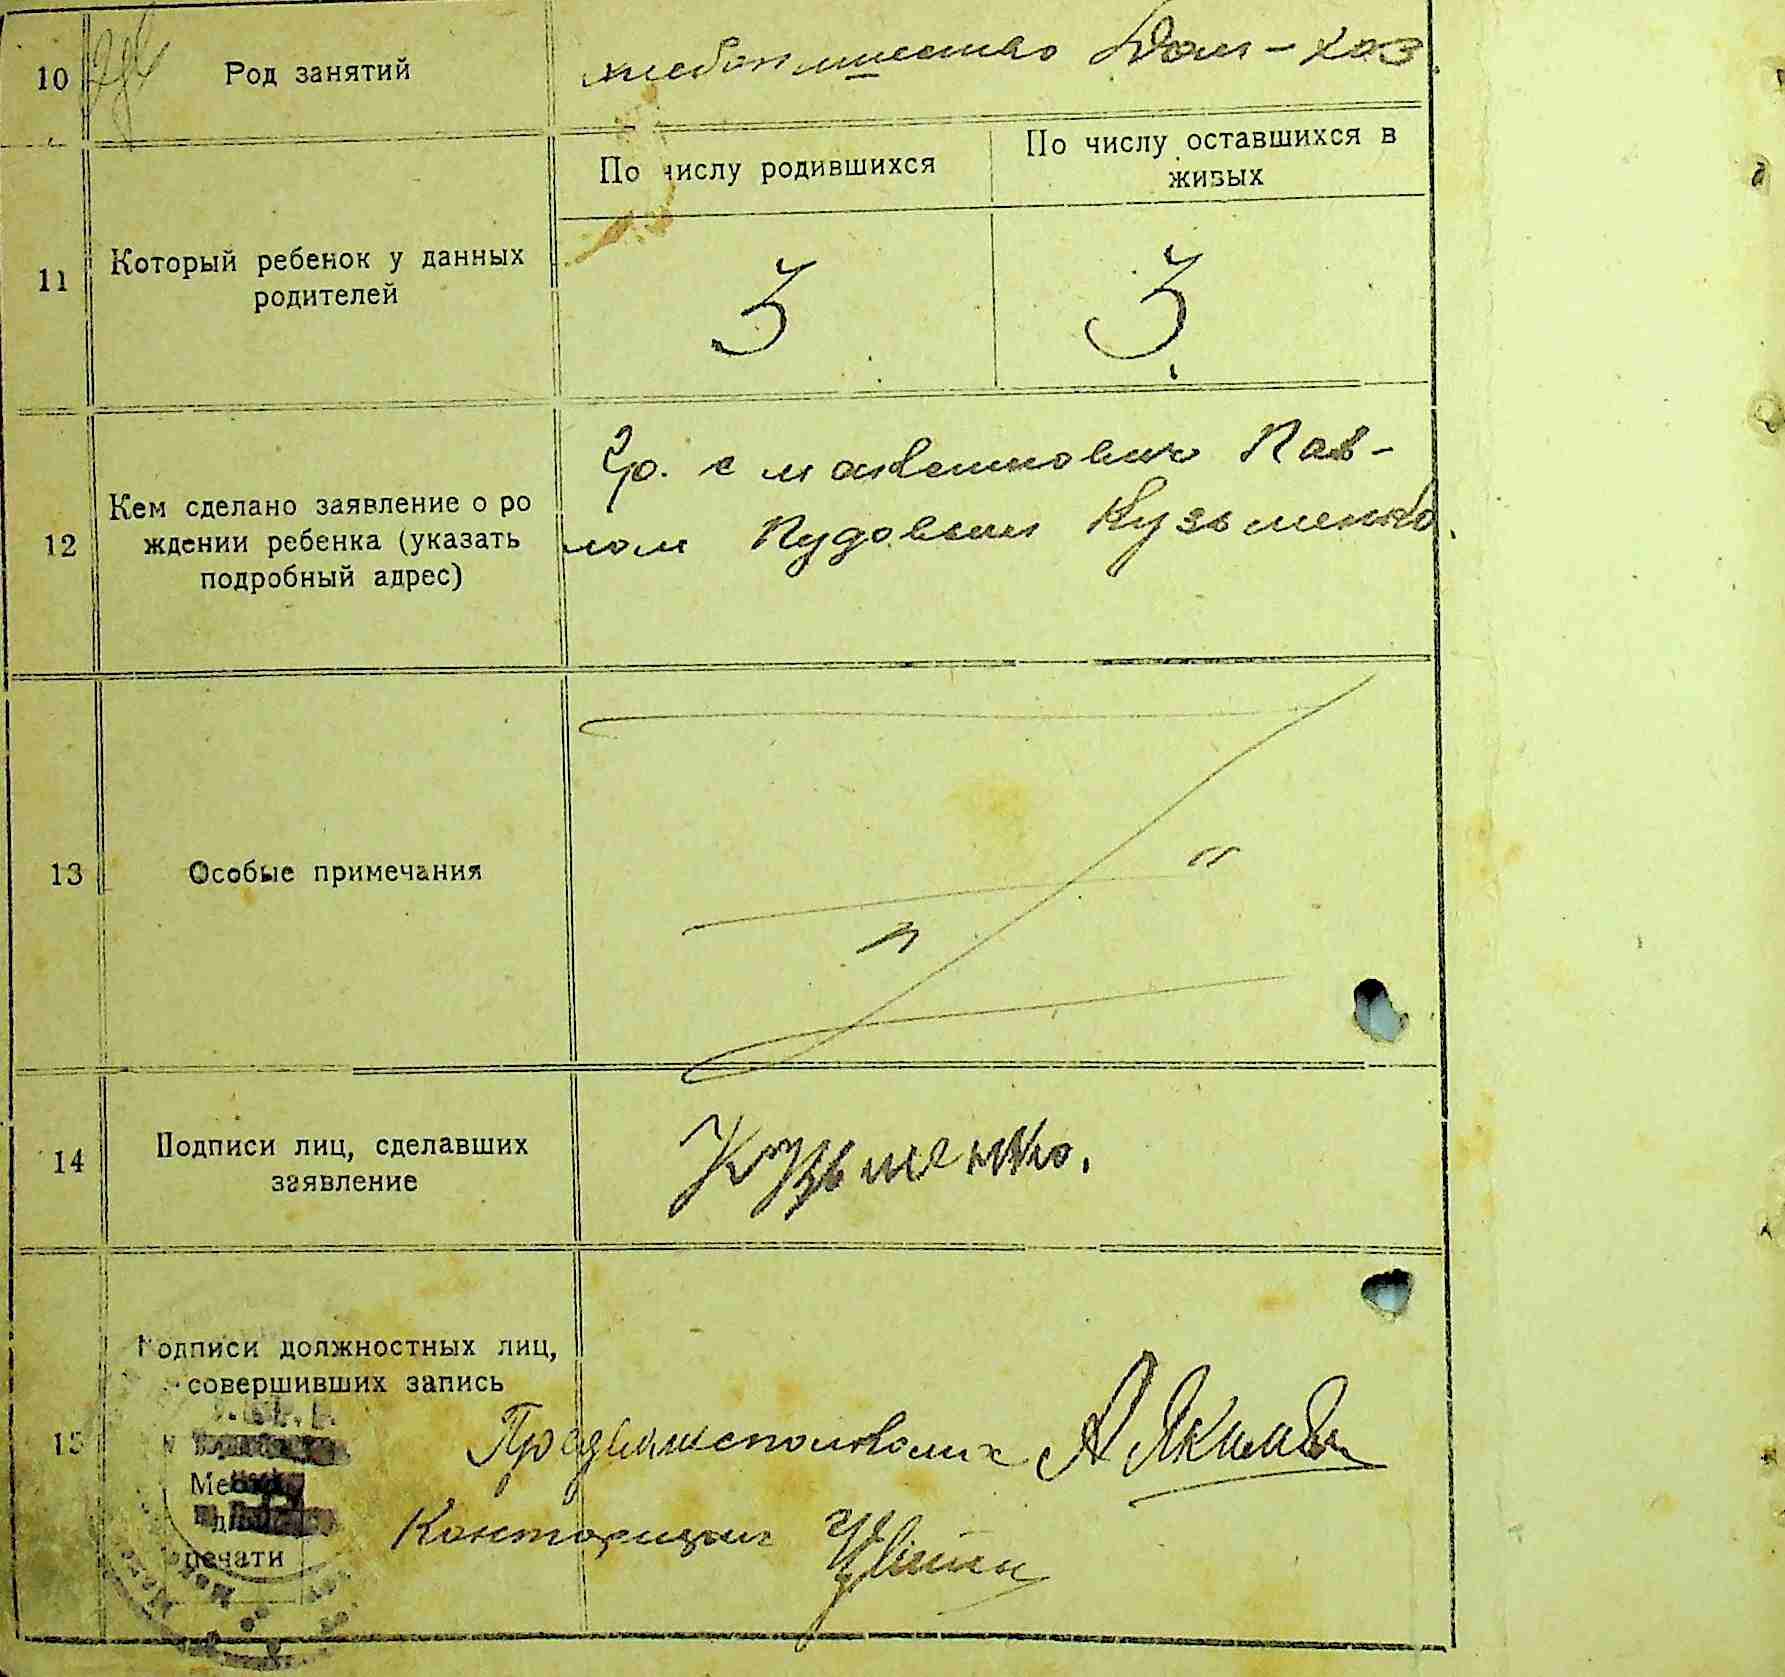 10 Род занятий хлебопашество Дом-хоз.
По числу родившихся
По числу оставшихся в
живых
11 Который ребенок у данных
родителей
3 3
12 Кем сделано заявление о ро
ждении ребенка (указать
подробный адрес)
Гр. с Пав-
лом Пудовым Кузьменко.
13 Особые примечания
14 Подписи лиц, сделавших
заявление
Кузьменко.
15 Подписи должностных лиц,
совершивших запись
печати